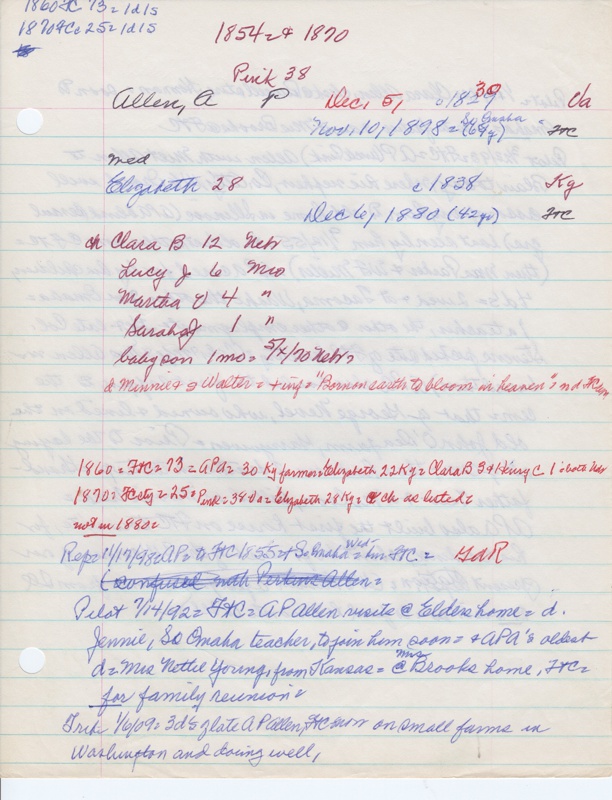 1860 FtC 73 = 1d1s
1870 FtC = 25 = 1d1s
1854 = + 1870
Pink 38
Allen, A P Dec, 5, c1829 30 Va
Nov. 10, 1898 = So Omaha (69y) FtC
med
Elizabeth 28 c1838 Kg
Dec 6, 1880 (42ys) FtC
ch Clara B 12 Neb
Lucy J 6 Mo
Martha V 4 "
Sarah J 1 "
baby son 1 mo = 5/4/70 Neb =
d Minnie + s Walter = + inf = "Born on earth to bloom in heaven" = n d FtC cem
1860 = FtC = 73 = APA = 30 Kg farmer = Elizabeth 22 Kg = Clara B 3 + Henry C 1 = both Neb
1870 = FtC sty = 25 = Pink = 38 Va = Elizabeth 28 Kg = ch as listed =
not in 1880 =
Rep = 11/17/98 = AP = to FtC 1855 = + So Omaha = Wed = bur FtC = GAR
(confused with Perkins Allen =
Pilot 7/14/92 = FtC = A P Allen visits @ Elders home = d.
Jennie, So Omaha teacher, to join him soon = + APA's oldest
d = Mrs Nettie Young, from Kansas = @ Mrs Brooks home, FtC =
for family reunion =
Trib 1/6/09 = 3 d's of late A P Allen, FtC now on small farms in
Washington and doing well,